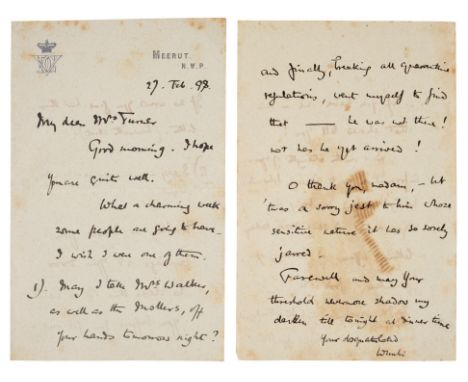 MEERUT.
N.W.P.
27. Feb. 98.
My dear Mrs Turner
Good morning. I hope
you are quite well.
What a charming week
some people are going to have.
I wish I were one of them.
1). May I take Mrs Walker,
as well as the Mothers, off
your hands tomorrow night?
and finally, breaking all quarantine
regulations went myself to find
that —— he was not there!
nor has he yet arrived!
O thank you, madam, – but
'twas a sorry jest to him whose
sensitive nature it has so sorely
jarred.
Farewell and may your
threshold nevermore shadow my
darken till tonight at dinner time
Your disquietabled